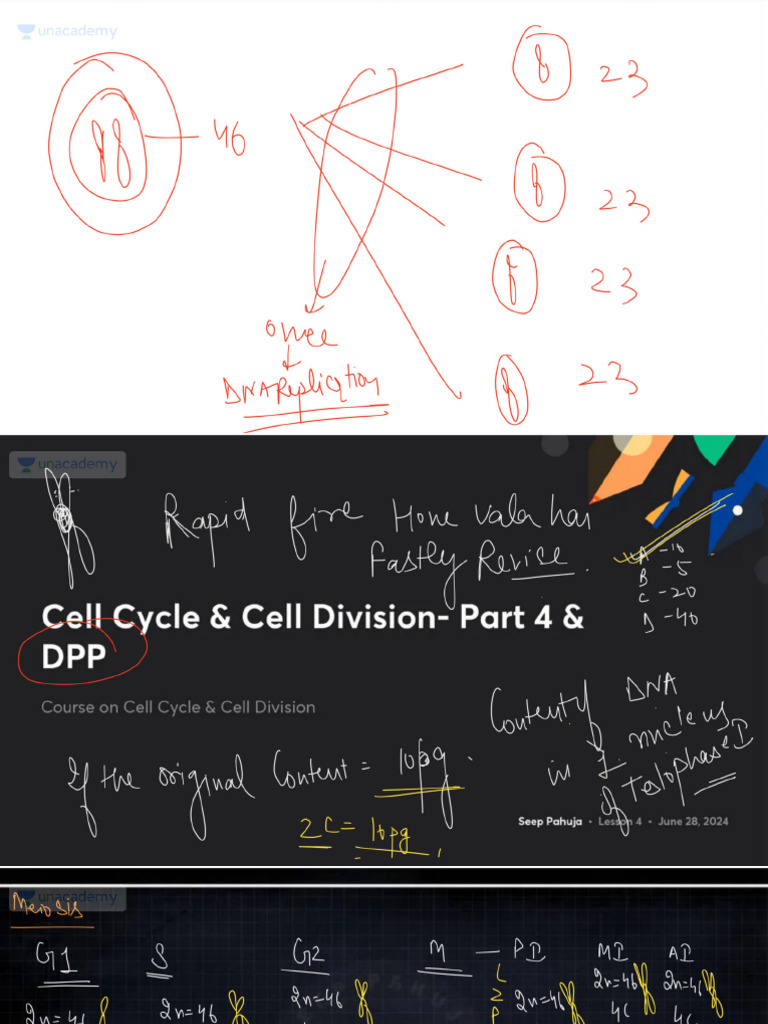 unacademy
46
23
23
23
23
once
DNA Replication
unacademy
Rapid fire Hone vala hai
Fastly Revise.
A -10
B -5
C -20
D -40
Cell Cycle & Cell Division- Part 4 &
DPP
Course on Cell Cycle & Cell Division
If the original Content = 10pg.
Content of DNA
in 1 nucleus
of Telophase I
2C = 10pg
Seep Pahuja • Lesson 4 • June 28, 2024
unacademy
Meiosis
G1 S G2 M — PI MI AI
2n=46 2n=46 2n=46 2n=46 2n=46 2n=46
L
Z
P
4C 4C